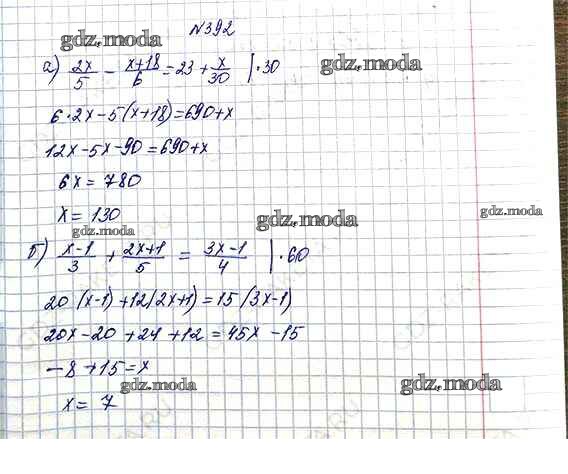 N392
gdz.moda
а) 2x/5 - x+18/6 = 23 + x/30 | ·30
gdz.moda
6·2x-5(x+18)=690+x
12x-5x-90=690+x
6x = 780
x = 130
gdz.moda
gdz.moda
gdz.moda
б) x-1/3 + 2x+1/5 = 3x-1/4 | ·60
20(x-1)+12(2x+1)=15(3x-1)
20x-20+24+12=45x-15
-8+15=x
gdz.moda
gdz.moda
x = 7